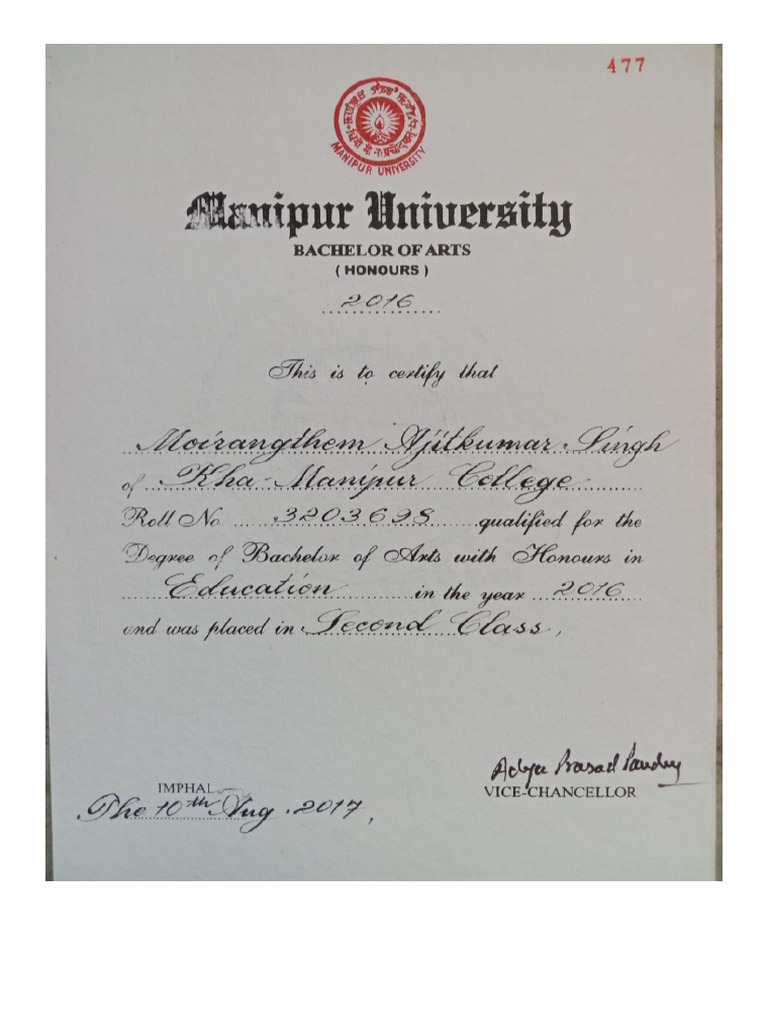 477
MANIPUR UNIVERSITY
Manipur University
BACHELOR OF ARTS
( HONOURS )
2016
This is to certify that
Moirangthem Ajitkumar Singh
of Kha-Manipur College
Roll No 3203698 qualified for the
Degree of Bachelor of Arts with Honours in
Education in the year 2016
and was placed in Second Class,
Adya Prasad Pandey
IMPHAL
VICE-CHANCELLOR
The 10th Aug. 2017,